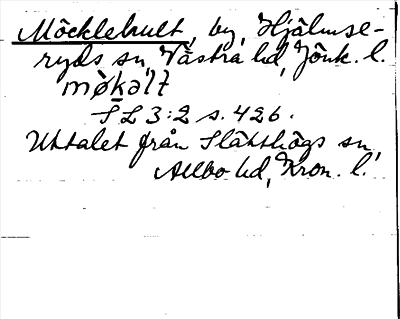 Möcklehult, by, Hjälmse-
ryds sn, Västra hd, Jönk. l.
møkalt
SL 3:2 s. 426.
Uttalet från Slätthögs sn,
Allbo hd, Kron. l.